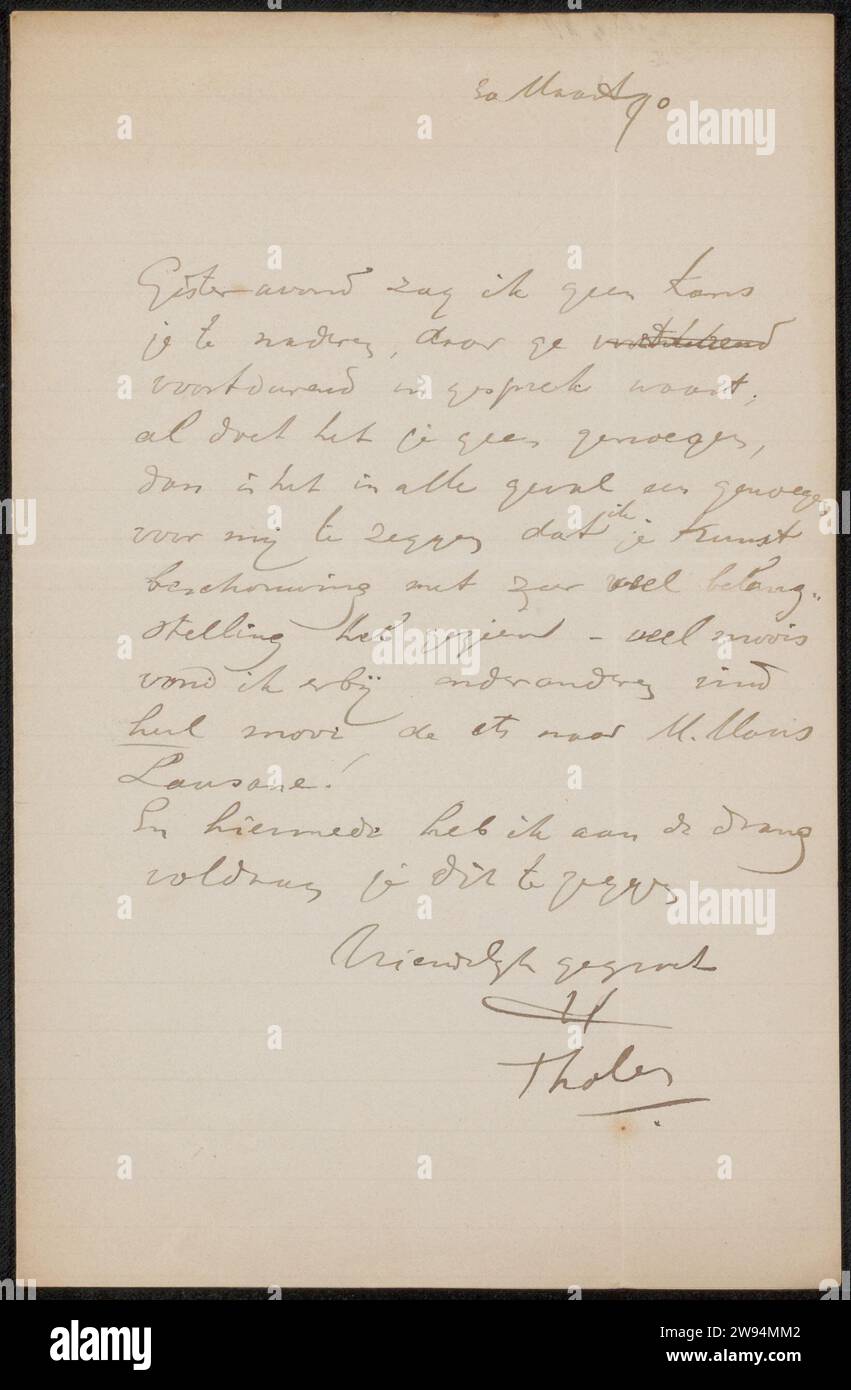 30 Maart 90
Gister avond zag ik geen kans
je te naderen, daar ge
voortdurend in gesprek waart,
al doet het je geen genoegen,
dan is het in alle geval een genoegen
voor mij te zeggen dat ik je Kunst
beschouwing met zeer veel belang-
stelling heb gezien – veel moois
vond ik erbij onderanderen vind
heel mooi de ets naar M. Maris
Lausane!
En hiermede heb ik aan de drang
voldaan je dit te zeggen
Vriendelijk gegroet
Tholen
alamy
Image ID: 2W94MM2
www.alamy.com